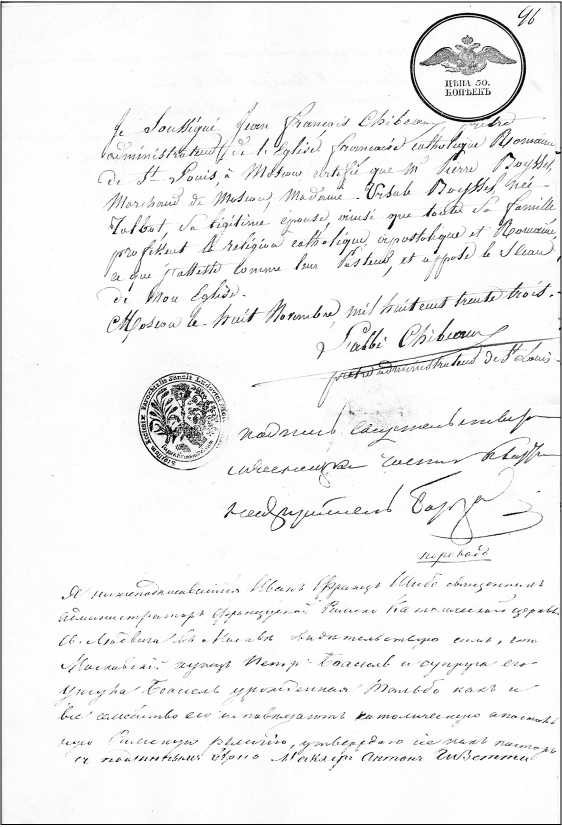 96
ЦѢНА 50.
КОПѢЕКЪ
Je Soussigné, Jean françois Chibeaux, prêtre
administrateur de l'Eglise francaise catholique Romaine
de St Louis, à Moscou certifie que Mr Pierre
Marchand de Moscou, Madame Ursule née
Talbot, Sa légitime epouse, ainsi que toute Sa famille
professent la religion catholique, apostolique et Romaine,
ce que j'atteste comme leur Pasteur, et appose le Sceau
de Mon Eglise.
Moscou le huit Novembre, mil huit cent trente trois.
L'abbé Chibeaux
prêtre administrateur de St Louis
Sigillum Ecclesiae Parochialis Sancti Ludovici
подпись
части
надзиратель
переводъ
Я нижеподписавшийся Иванъ Францъ Шибо священникъ
администраторъ Французской Римско Католической церкви
Св. Людвига въ Москвѣ свидетельствую симъ, что
Московский купецъ Петръ и супруга его
урожденная Тальбо какъ и
все семейство его исповедаютъ католическую апостоль
скую Римскую религию, утверждаю се какъ пасторъ
съ подлиннымъ верно Антонъ